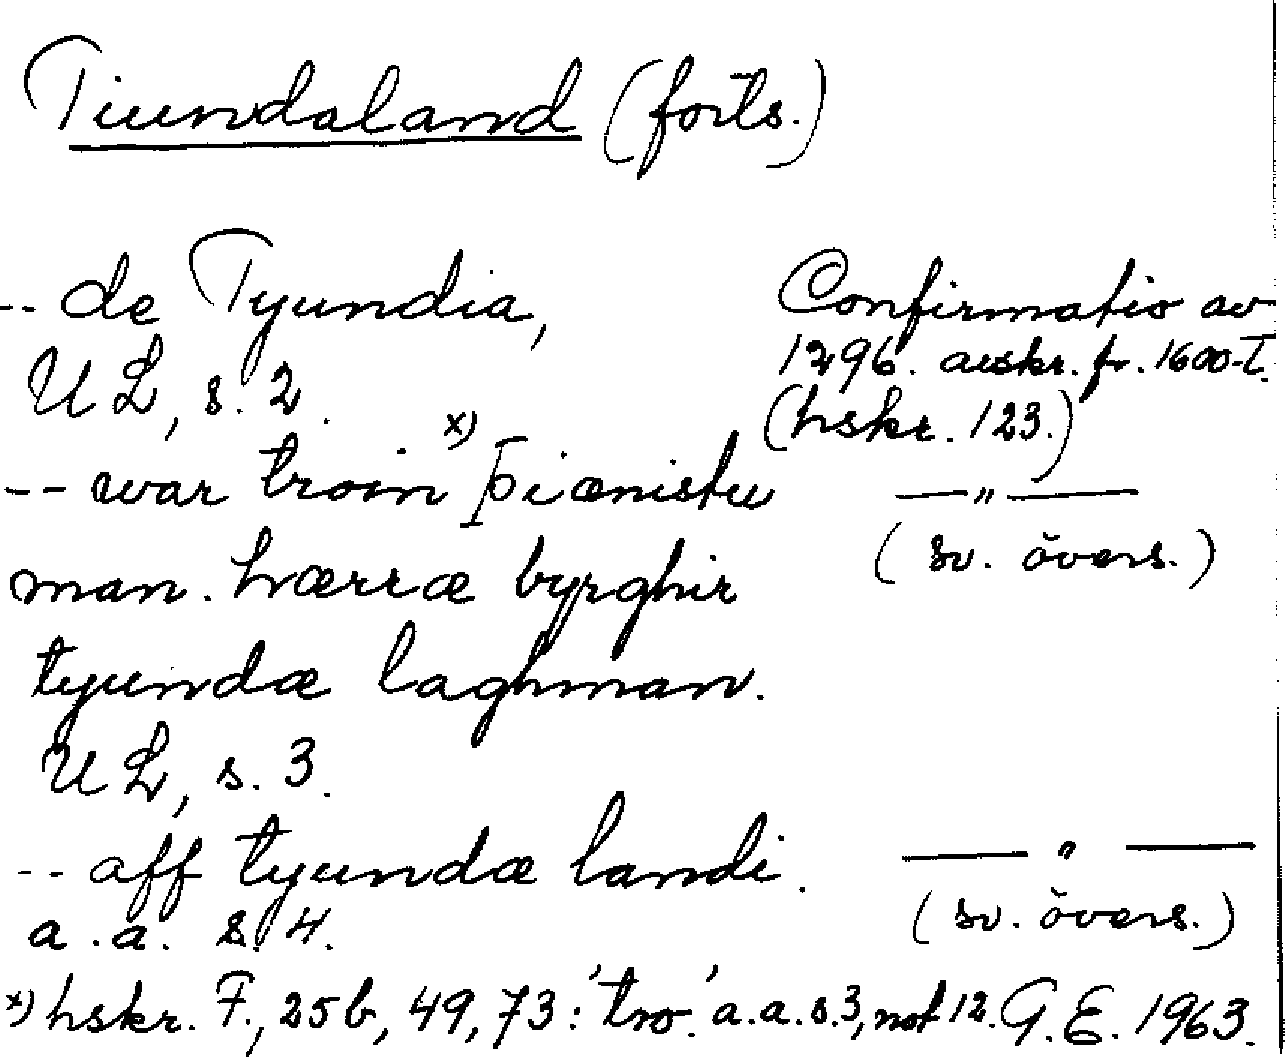 Tiundaland (forts.)
-- de Tyundia,
UL, s. 2.
Confirmatio av
1296. avskr. fr. 1600-t.
(hskr. 123.)
-- war troin x) þiænistu
man. hærræ byrghir
tyundæ laghman.
UL, s. 3.
— " —
(sv. övers.)
-- aff tyundæ landi.
a.a. s. 4.
— " —
(sv. övers.)
x) hskr. F., 25b, 49, 73: 'tro.' a.a. s.3, not 12. G.E. 1963.